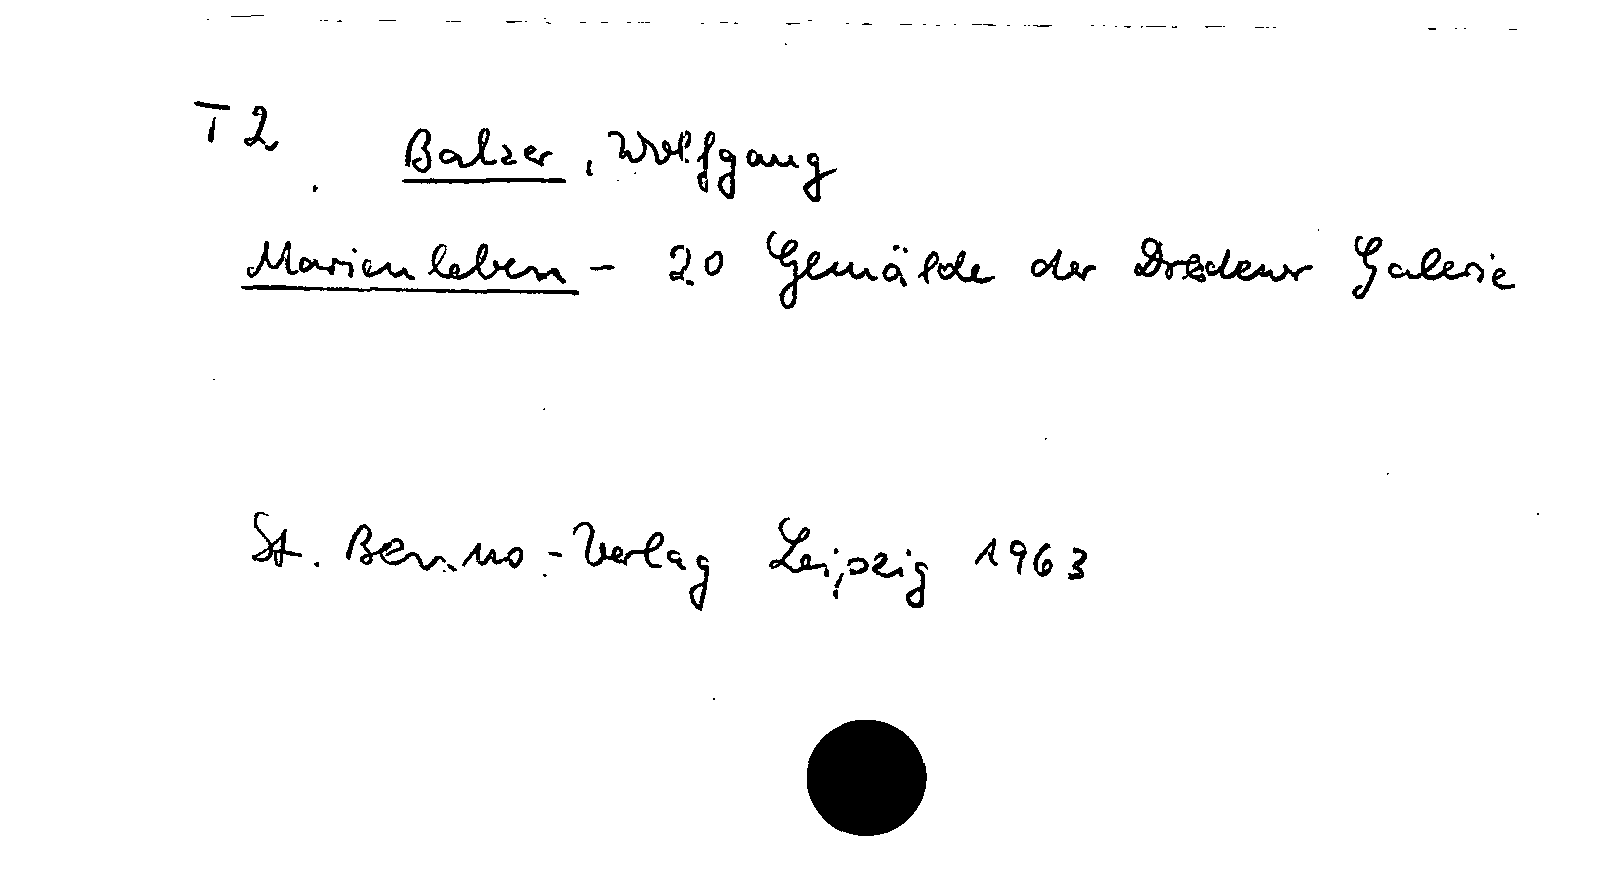 T 2
Balzer, Wolfgang
Marienleben – 20 Gemälde der Dresdener Galerie
St. Benno-Verlag Leipzig 1963